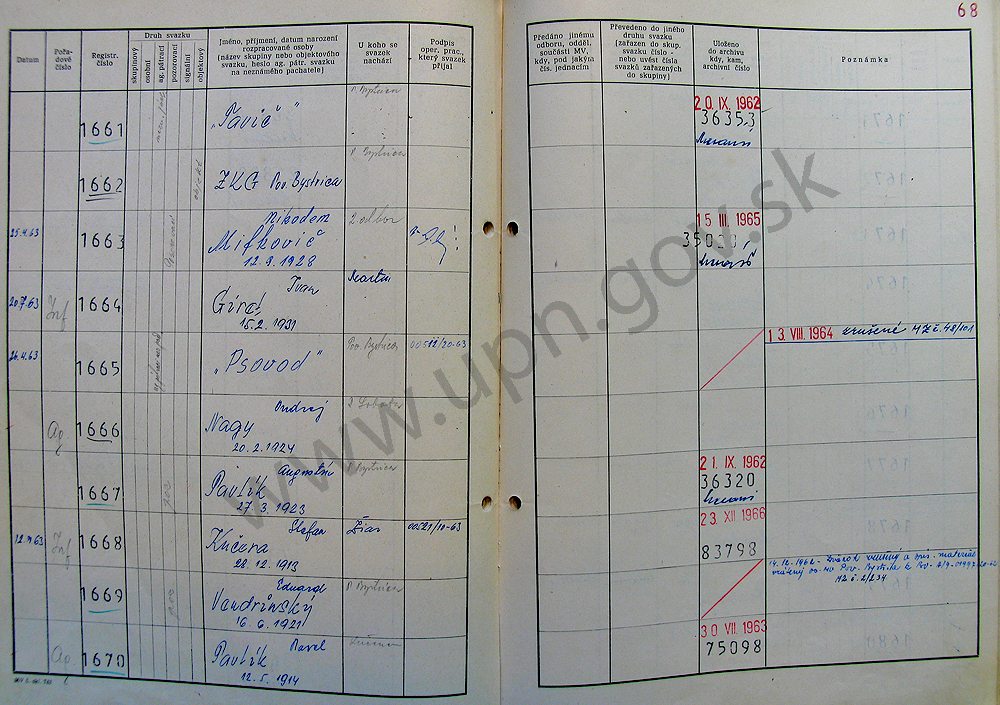 68
Datum
Pořa-
dové
číslo
Registr.
číslo
Druh svazku
skupinový
osobní
ag. pátrací
pozorovací
signální
objektový
Jméno, příjmení, datum narození
rozpracované osoby
(název skupiny nebo objektového
svazku, heslo ag. pátr. svazku
na neznámého pachatele)
U koho se
svazek
nachází
Podpis
oper. prac.,
který svazek
přijal
Předáno jinému
odboru, odděl.
součásti MV,
kdy, pod jakým
čís. jednacím
Převedeno do jiného
druhu svazku
(zařazen do skup.
svazku číslo -
nebo uvést čísla
svazků zařazených
do skupiny)
Uloženo
do archivu
kdy, kam,
archivní číslo
Poznámka
1661
„Pavič"
P. Bystrica
20. IX. 1962
36353
1662
objekt
ZKG Pov. Bystrica
P. Bystrica
25.4.63
1663
Nikodem
Mifkovič
12.9.1928
2 odbor
15 III. 1965
20.7.63
Inf
1664
Ivan
15.2.1931
Martin
26.4.63
1665
„Psovod"
Pov. Bystrica
00512/20-63
13. VIII. 1964
zrušené MZ č. 48/101
Ag.
1666
Ondrej
Nagy
20.2.1924
1667
poz
Augustín
Pavlík
27.3.1923
P. Bystrica
21. IX. 1962
36320
Inf
1668
Štefan
Kučera
28.12.1913
Žiar
00521/10-63
23 XII 1966
83798
1669
poz
Eduard
Vandrinský
16.6.1921
P. Bystrica
14.12.1962-
a
materiál
Pov. Bystrica
Ag
1670
Pavel
Pavlík
12.5.1914
30 VII. 1963
75098
www.upn.gov.sk